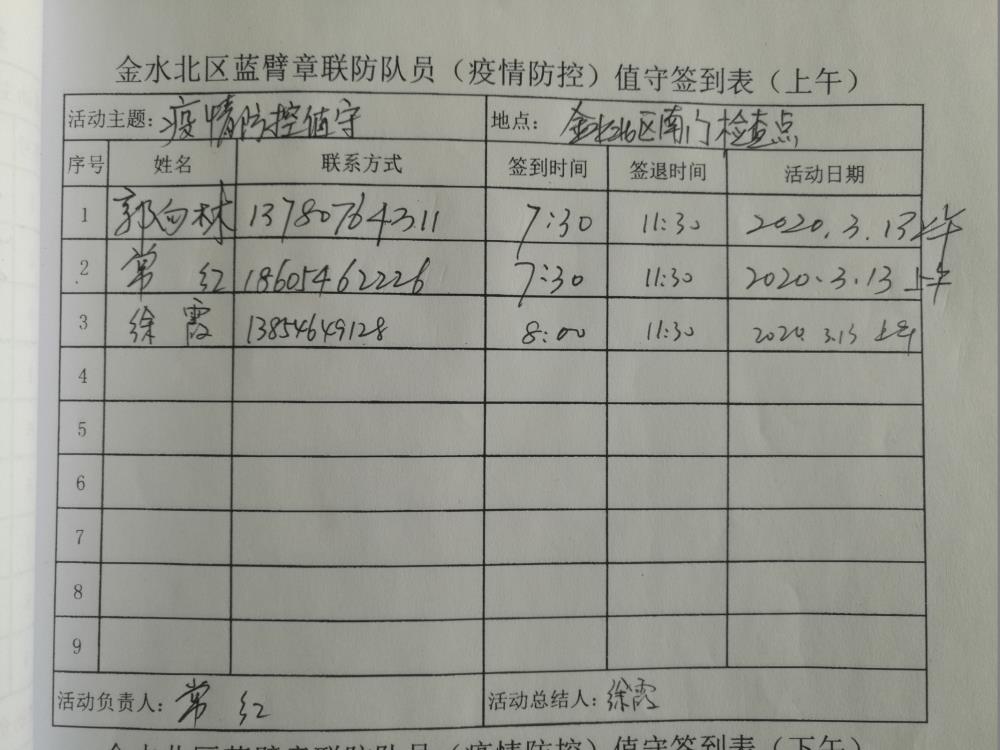 金水北区蓝臂章联防队员（疫情防控）值守签到表（上午）
活动主题: 疫情防控值守 地点: 金水北区南门检查点
序号 姓名 联系方式 签到时间 签退时间 活动日期
1 郭向林 13780764311 7:30 11:30 2020.3.13上午
2 常红 18605462226 7:30 11:30 2020.3.13上午
3 徐霞 13854649128 8:00 11:30 2020.3.13 上午
4
5
6
7
8
9
活动负责人: 常红 活动总结人: 徐霞
金水北区蓝臂章联防队员（疫情防控）值守签到表（下午）